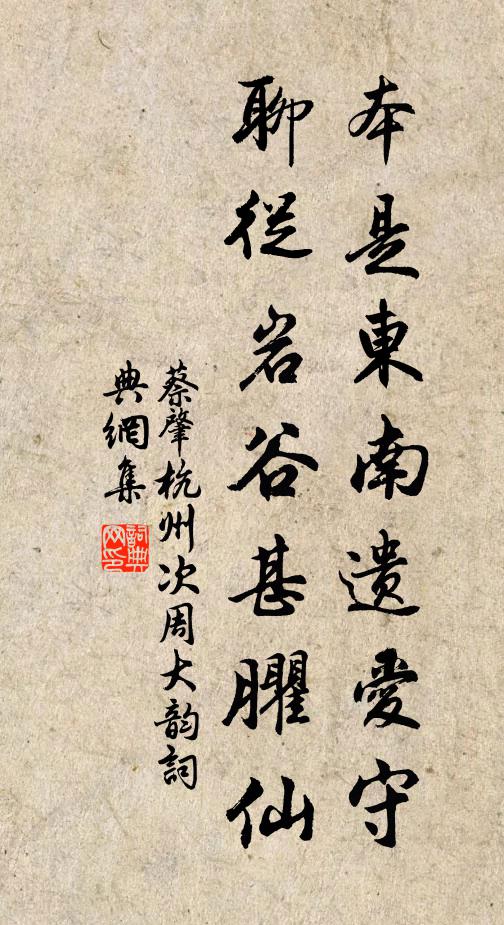 本是東南遺愛守
聊從岩谷甚臞仙
蔡肇杭州次周大韵詞
典網集
詞典網印